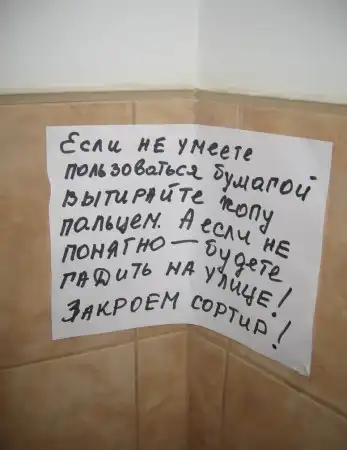 Если не умеете
пользоваться бумагой
вытирайте жопу
пальцем. А если не
понятно — будете
гадить на улице!
Закроем сортир!